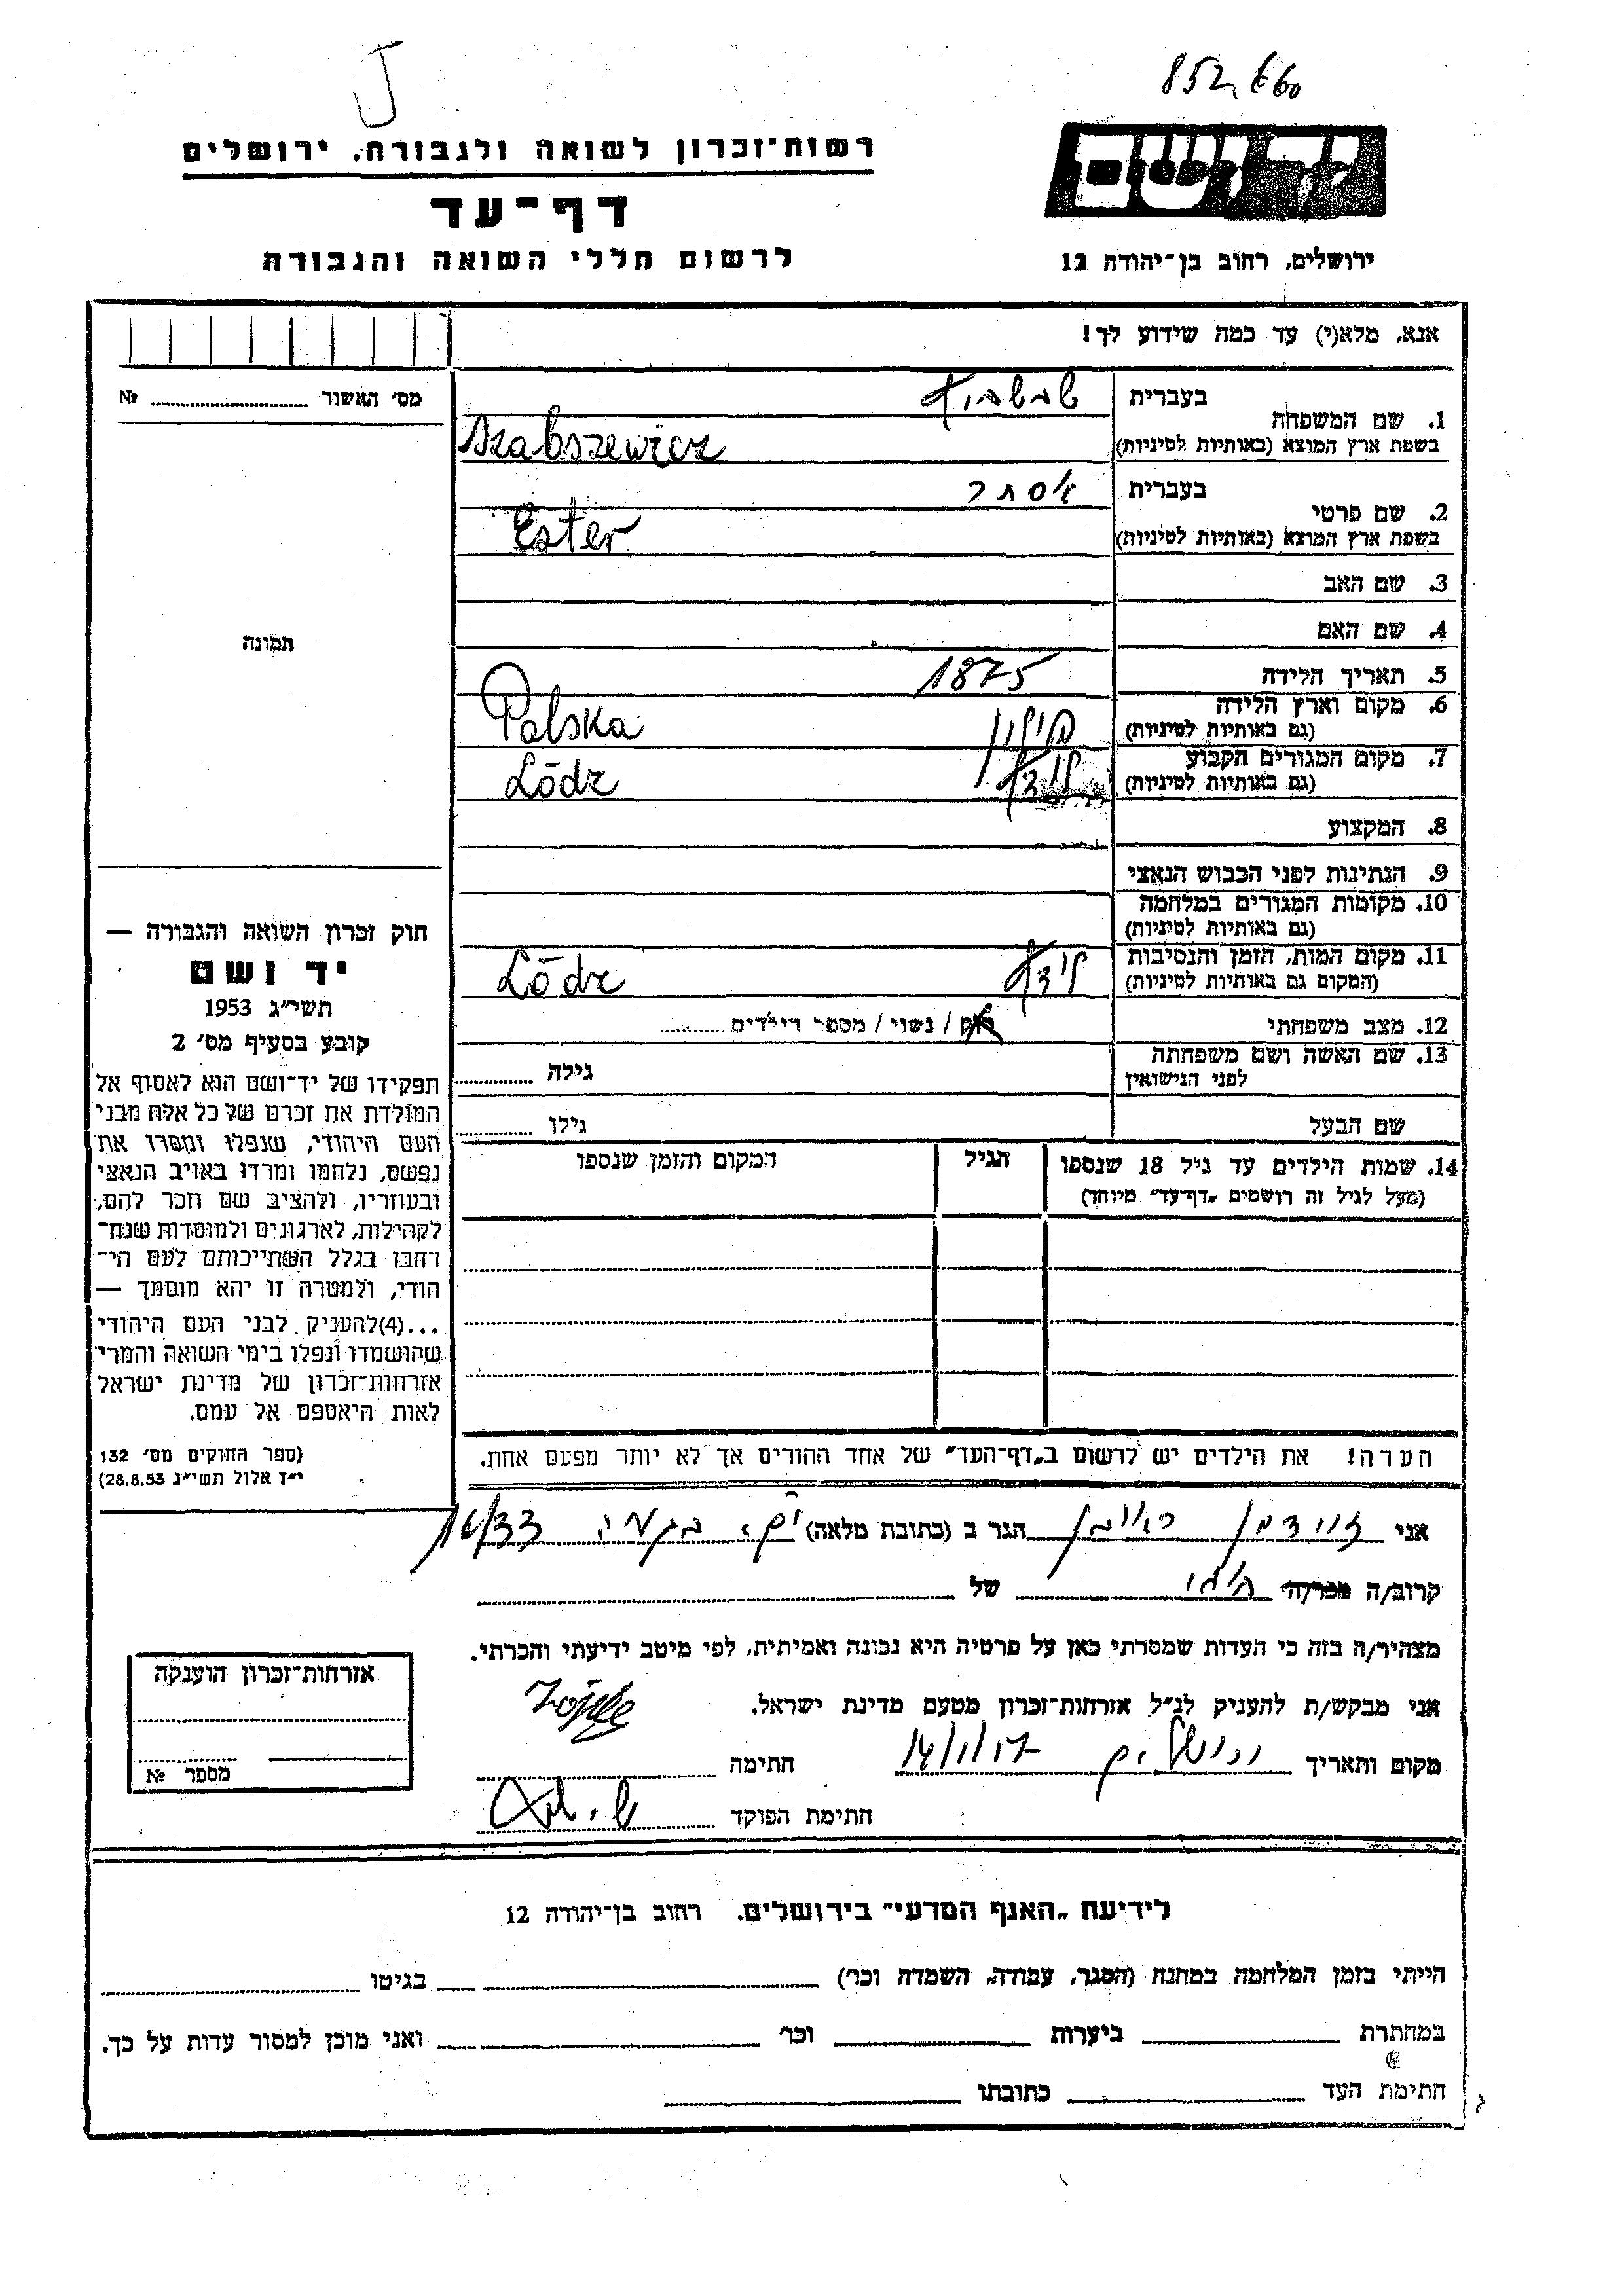 J
852,660
רשות־זכרון לשואה ולגבורה, ירושלים
דף־עד
לרשום חללי השואה והגבורה
יד ושם
ירושלים, רחוב בן־יהודה 12
אנא, מלא(י) עד כמה שידוע לך!
מס׳ האשור № 
1. שם המשפחה
בעברית
Szabszewicz
בשפת ארץ המוצא (באותיות לטיניות)
2. שם פרטי
בעברית אסתר
Ester
בשפת ארץ המוצא (באותיות לטיניות)
3. שם האב
4. שם האם
תמונה
5. תאריך הלידה 1875
6. מקום וארץ הלידה
(גם באותיות לטיניות)
פולין Polska
7. מקום המגורים הקבוע
(גם באותיות לטיניות)
לודז׳ Lódz
8. המקצוע
9. הנתינות לפני הכבוש הנאצי
10. מקומות המגורים במלחמה
(גם באותיות לטיניות)
11. מקום המות, הזמן והנסיבות
(המקום גם באותיות לטיניות)
לודז׳ Lódz
12. מצב משפחתי רוק / נשוי / מספר הילדים
13. שם האשה ושם משפחתה
לפני הנישואין
גילה
שם הבעל גילו
14. שמות הילדים עד גיל 18 שנספו
(מעל לגיל זה רושמים „דף־עד״ מיוחד)
הגיל
המקום והזמן שנספו
הערה! את הילדים יש לרשום ב„דף־העד״ של אחד ההורים אך לא יותר מפעם אחת.
חוק זכרון השואה והגבורה —
יד ושם
תשי״ג 1953
קובע בסעיף מס׳ 2
תפקידו של יד־ושם הוא לאסוף אל
המולדת את זכרם של כל אלה מבני
העם היהודי, שנפלו ומסרו את
נפשם, נלחמו ומרדו באויב הנאצי
ובעוזריו, ולהציב שם וזכר להם,
לקהילות, לארגונים ולמוסדות שנח־
רחבו בגלל השתייכותם לעם הי־
הודי, ולמטרה זו יהא מוסמך —
...(4)להעניק לבני העם היהודי
שהושמדו ונפלו בימי השואה והמרי
אזרחות־זכרון של מדינת ישראל
לאות היאספם אל עמם.
(ספר החוקים מס׳ 132
י״ז אלול תשי״ג 28.8.53)
אני זוידמן ראובן הגר ב (כתובת מלאה)
קרוב/ה מכר/ה של
מצהיר/ה בזה כי העדות שמסרתי כאן על פרטיה היא נכונה ואמיתית, לפי מיטב ידיעתי והכרתי.
אני מבקש/ת להעניק לנ״ל אזרחות־זכרון מטעם מדינת ישראל.
מקום ותאריך ירושלים חתימה
חתימת הפוקד
אזרחות־זכרון הוענקה
מספר №
לידיעת „האגף המדעי״ בירושלים. רחוב בן־יהודה 12
הייתי בזמן המלחמה במחנה (הסגר, עבודה, השמדה וכו׳) בגיטו
במחתרת ביערות וכו׳ ואני מוכן למסור עדות על כך.
חתימת העד כתובתו